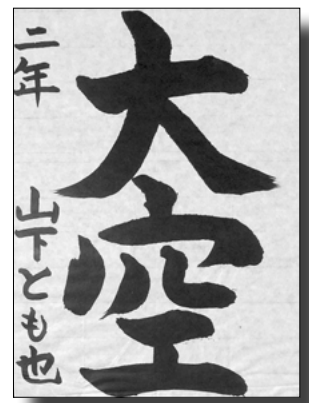 大空
二年 山下とも也